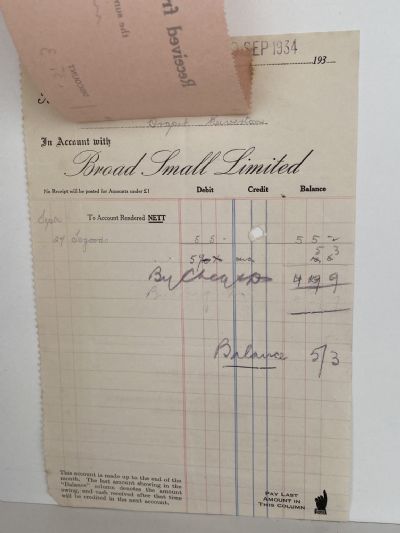 Received
the sum
fr
DISCOUNT
SEP 1934
193
Draper
In Account with
Broad Small Limited
No Receipt will be posted for Amounts under £1
Debit Credit Balance
Sept To Account Rendered NETT
27 To goods 5 5 - 5 5 -
5% 5 3
By Cheque 4 19 9
Balance 5/3
This account is made up to the end of the
month. The last amount showing in the
"Balance" column denotes the amount
owing, and cash received after that time
will be credited in the next account.
PAY LAST
AMOUNT IN
THIS COLUMN